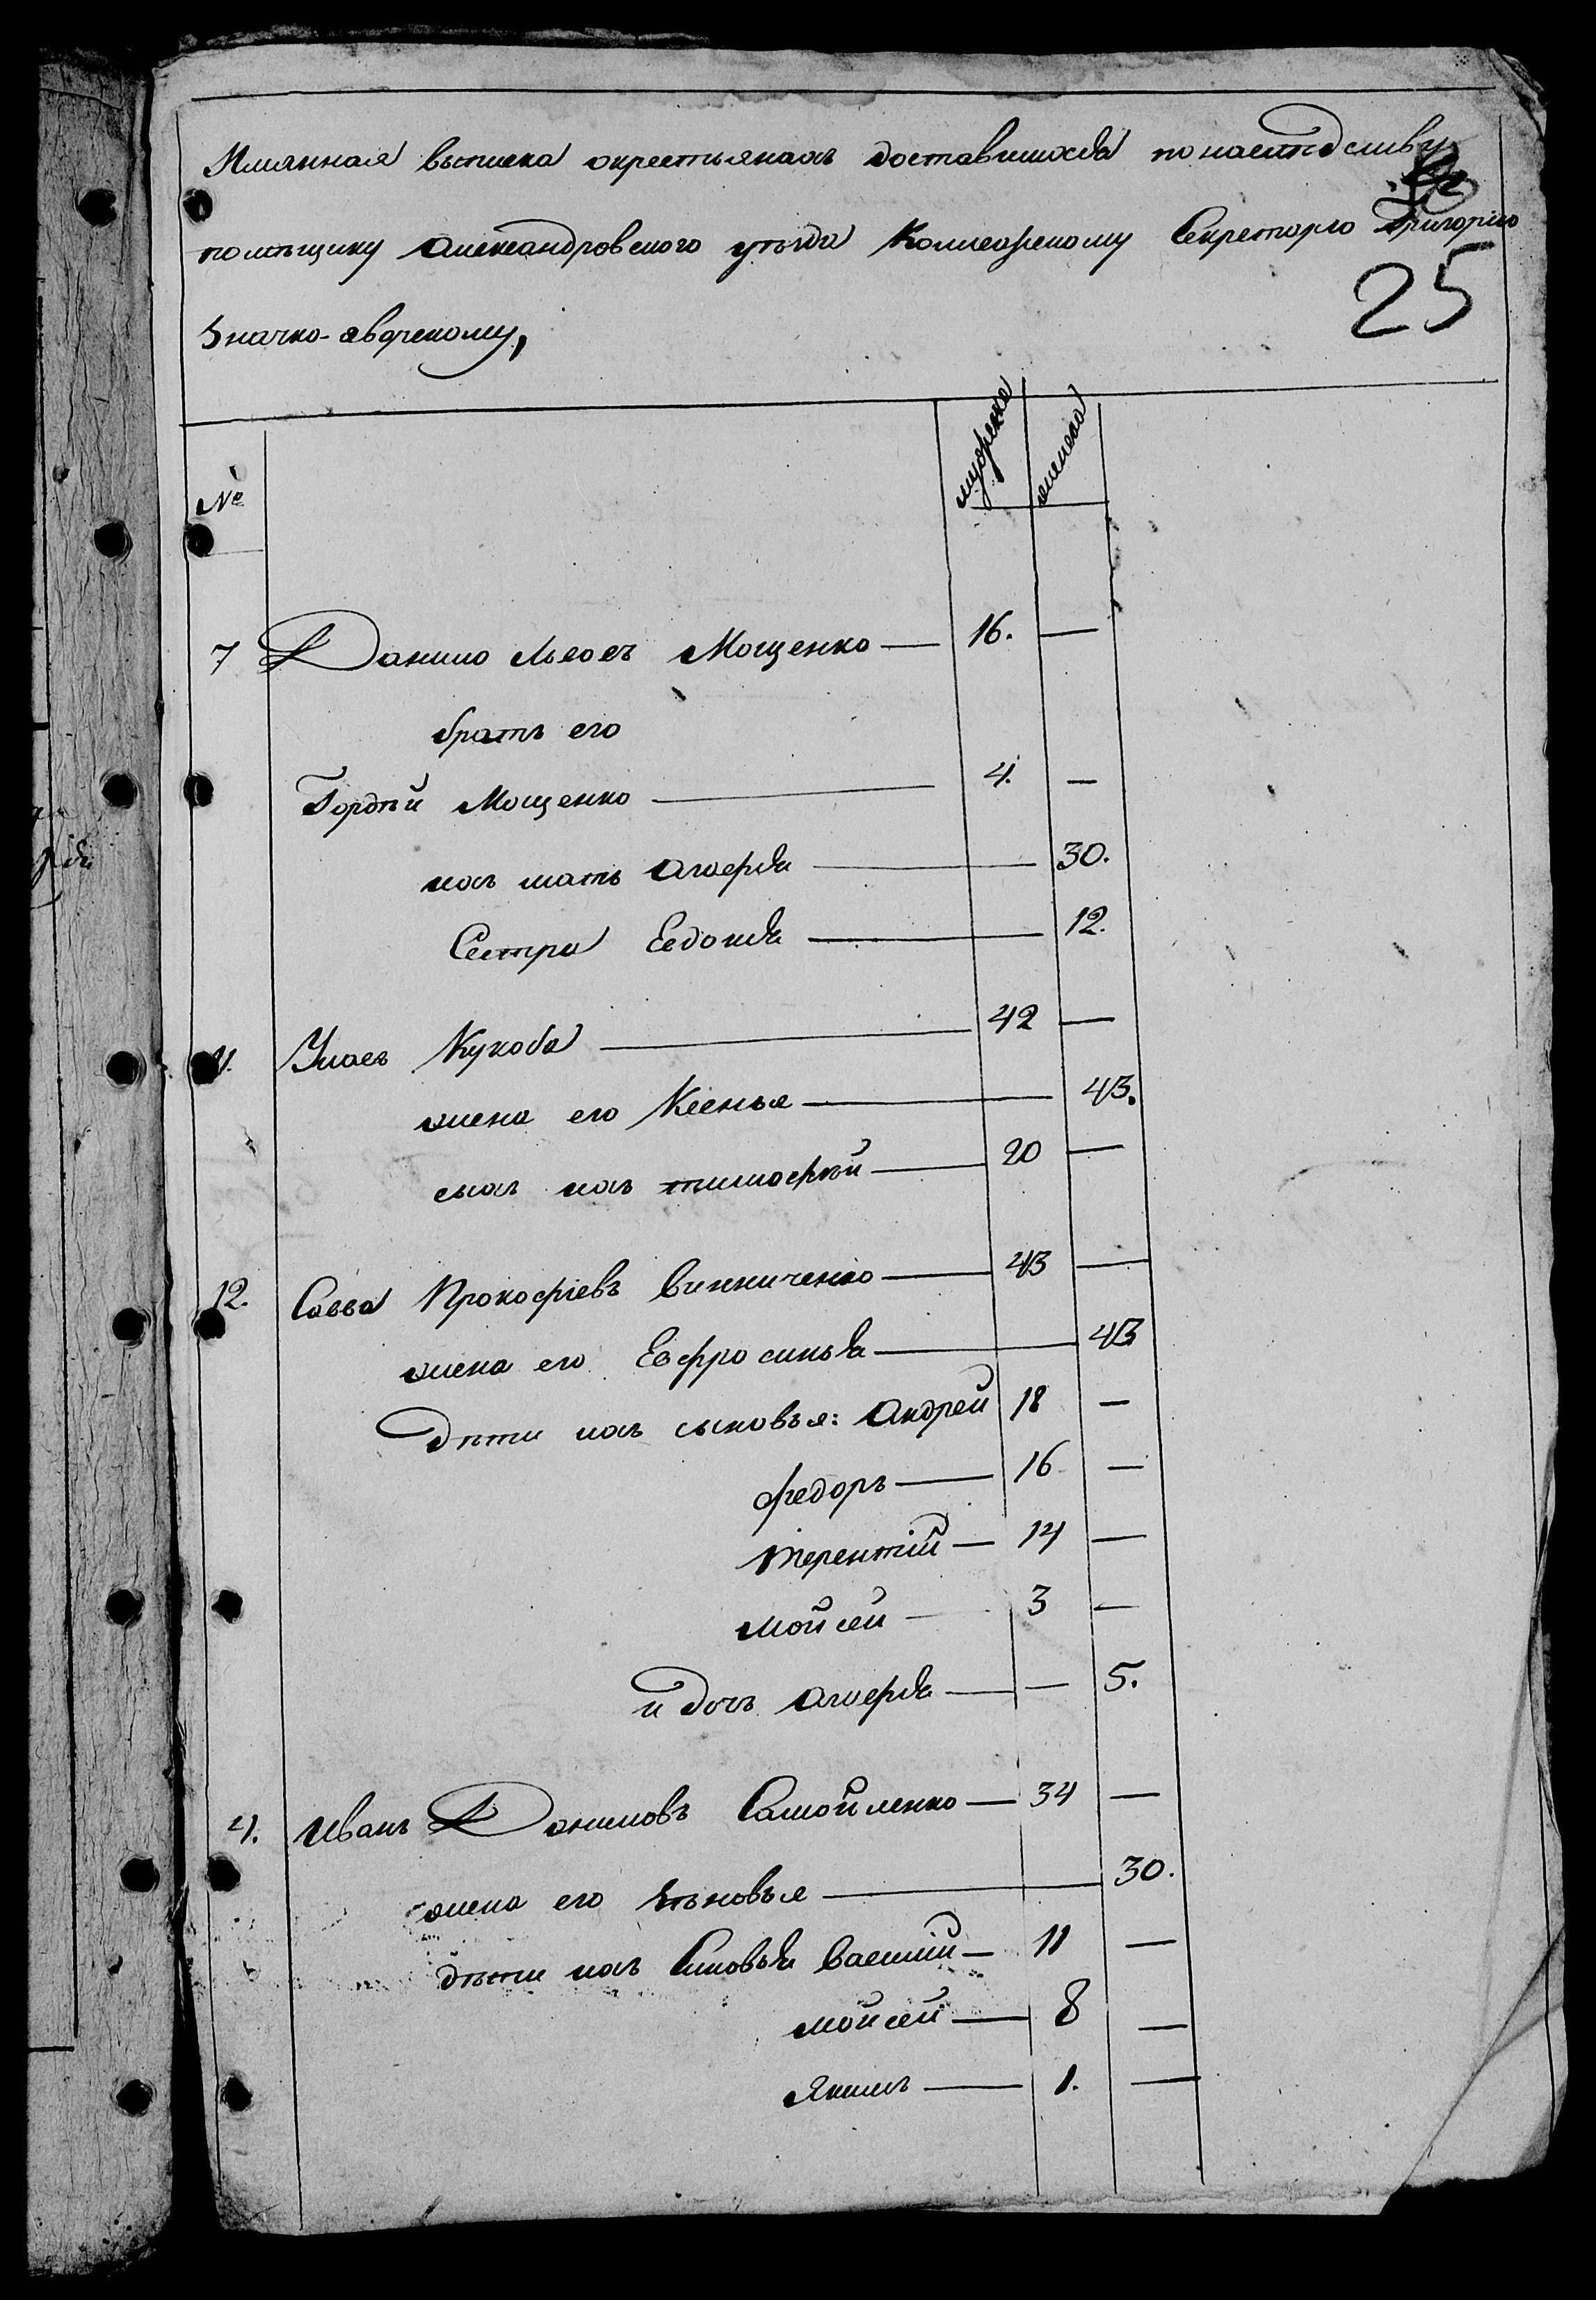 Имянная выписка окрестьянахъ доставшихся понаследству
помѣщику Александровского уѣзда Коллежскому Секретарю Григорию
Значко-яворскому,
25
№ мужеска женска
7 Данило Мощенко — 16. —
братъ его
Гордѣй Мощенко — 4. —
ихъ мать Агафья — 30.
Сестра Евдокия — 12.
Улас Кукоба — 42 —
жена его Ксенья — 43.
сынъ ихъ тимофѣй — 20 —
12. Савва Прокофіевъ Винниченко — 43 —
жена его Евфросинья — 43
Дѣти ихъ сыновья: Андрей 18 —
Федоръ — 16 —
Терентій — 14 —
Мойсей — 3 —
и дочь Агафья — — 5.
4. Иванъ Даниловъ Самойленко — 34 —
жена его Зѣновья — 30.
дѣти ихъ Синовья Василій — 11 —
Мойсей — 8 —
Якимъ — 1. —